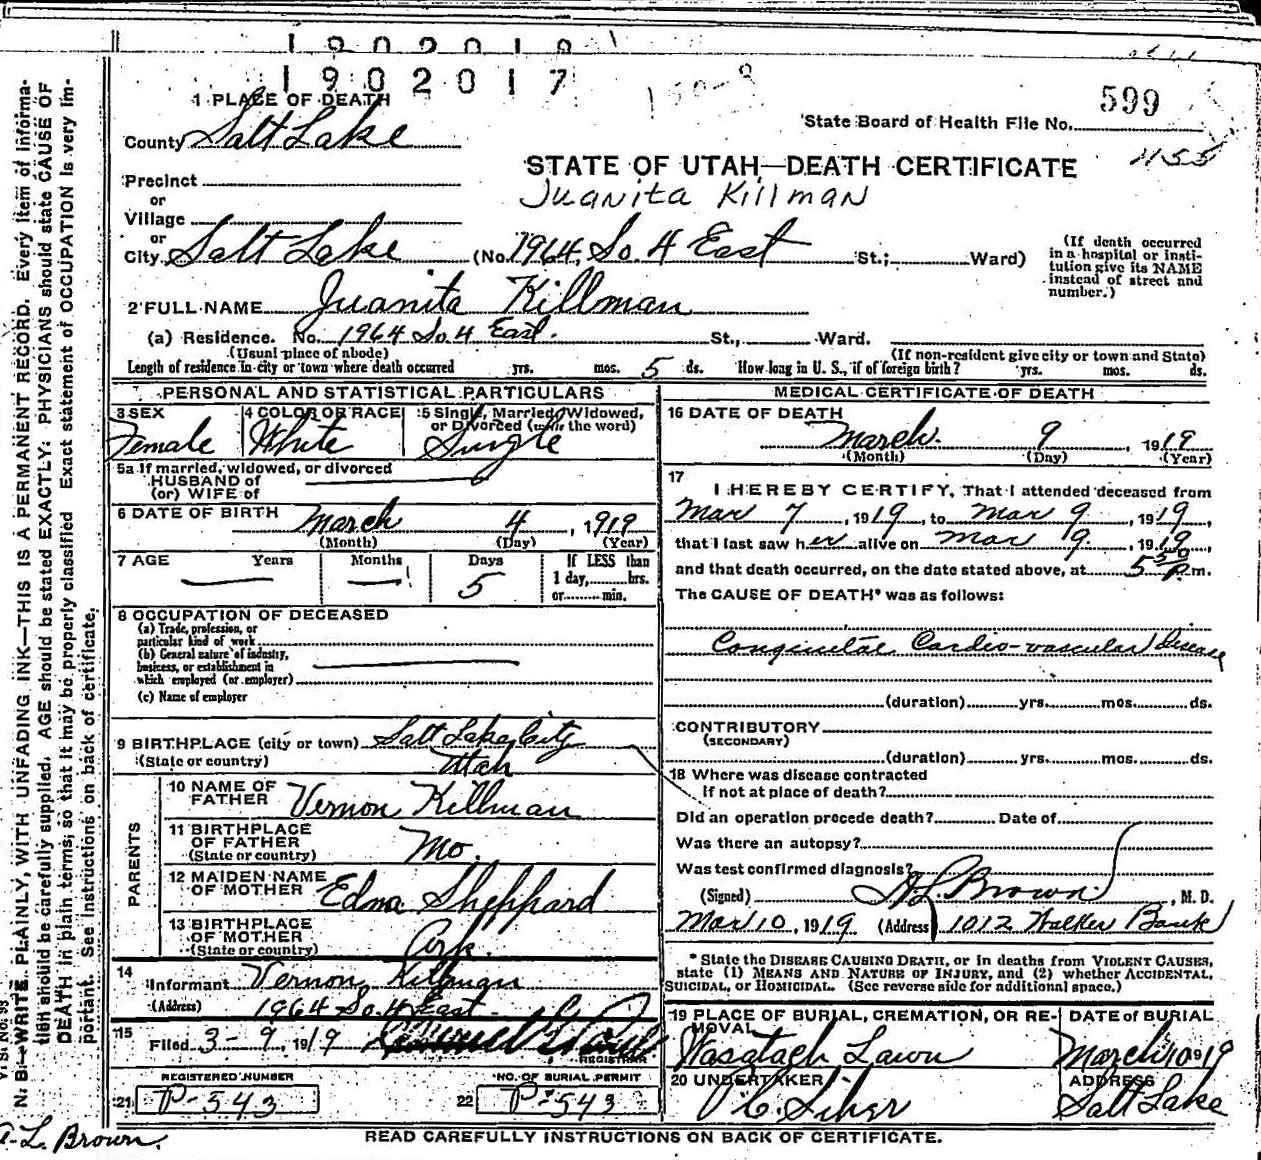 1902018
1902017
599
1 PLACE OF DEATH
County Salt Lake
State Board of Health File No.
455
STATE OF UTAH—DEATH CERTIFICATE
Juanita Killman
Precinct
or
Village
or
City Salt Lake (No. 1964 So. 4 East St.; Ward)
(If death occurred in a hospital or institution give its NAME instead of street and number.)
2 FULL NAME Juanita Killman
(a) Residence. No. 1964 So. 4 East. St., Ward.
(Usual place of abode) (If non-resident give city or town and State)
Length of residence in city or town where death occurred yrs. mos. 5 ds. How long in U. S., if of foreign birth? yrs. mos. ds.
PERSONAL AND STATISTICAL PARTICULARS
3 SEX Female
4 COLOR OR RACE White
5 Single, Married, Widowed, or Divorced (write the word) Single
5a If married, widowed, or divorced
HUSBAND of
(or) WIFE of
6 DATE OF BIRTH March 4, 1919
(Month) (Day) (Year)
7 AGE Years Months Days 5
If LESS than
1 day, hrs.
or min.
8 OCCUPATION OF DECEASED
(a) Trade, profession, or
particular kind of work
(b) General nature of industry,
business, or establishment in
which employed (or employer)
(c) Name of employer
9 BIRTHPLACE (city or town) Salt Lake City
(State or country) Utah
PARENTS
10 NAME OF FATHER Vernon Killman
11 BIRTHPLACE OF FATHER (State or country) Mo.
12 MAIDEN NAME OF MOTHER Edna Sheppard
13 BIRTHPLACE OF MOTHER (State or country) Ark.
14 Informant Vernon Killman
(Address) 1964 So. 4 East
15 Filed 3-9, 1919
REGISTRAR
REGISTERED NUMBER
21 P-543
NO. OF BURIAL PERMIT
22 P-543
MEDICAL CERTIFICATE OF DEATH
16 DATE OF DEATH
March 9 1919
(Month) (Day) (Year)
17 I HEREBY CERTIFY, That I attended deceased from
Mar 7, 1919, to Mar 9, 1919,
that I last saw her alive on Mar 9, 1919,
and that death occurred, on the date stated above, at 5 30 P.m.
The CAUSE OF DEATH* was as follows:
Congenital Cardio-vascular disease
(duration) yrs. mos. ds.
CONTRIBUTORY
(SECONDARY)
(duration) yrs. mos. ds.
18 Where was disease contracted
if not at place of death?
Did an operation precede death? Date of
Was there an autopsy?
Was test confirmed diagnosis?
(Signed) A. L. Brown, M. D.
Mar 10, 1919 (Address) 1012 Walker Bank
* State the DISEASE CAUSING DEATH, or in deaths from VIOLENT CAUSES,
state (1) MEANS AND NATURE OF INJURY, and (2) whether ACCIDENTAL,
SUICIDAL, or HOMICIDAL. (See reverse side for additional space.)
19 PLACE OF BURIAL, CREMATION, OR REMOVAL Wasatch Lawn
DATE of BURIAL March 10 1919
20 UNDERTAKER
ADDRESS Salt Lake
READ CAREFULLY INSTRUCTIONS ON BACK OF CERTIFICATE.
A. L. Brown.
N. B.—WRITE PLAINLY, WITH UNFADING INK—THIS IS A PERMANENT RECORD. Every item of information should be carefully supplied. AGE should be stated EXACTLY: PHYSICIANS should state CAUSE OF DEATH in plain terms, so that it may be properly classified. Exact statement of OCCUPATION is very important. See instructions on back of certificate.